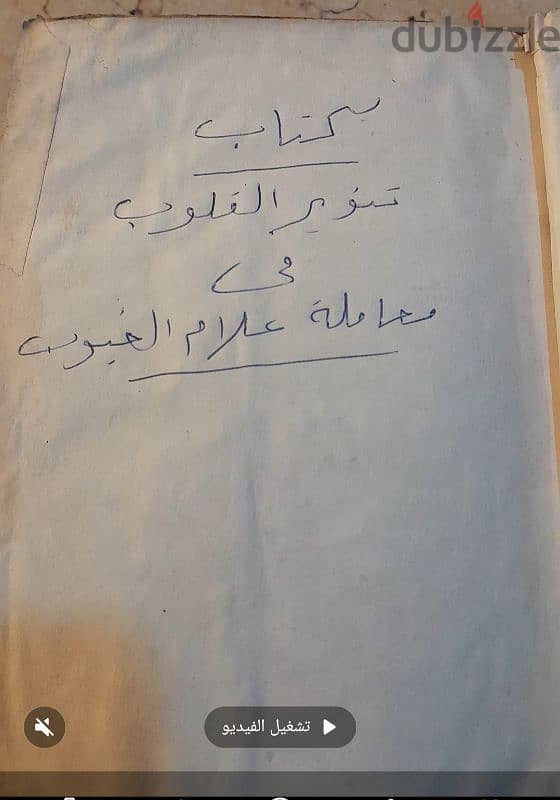 dubizzle
كتاب
تنوير القلوب
فى
معاملة علام الغيوب
تشغيل الفيديو